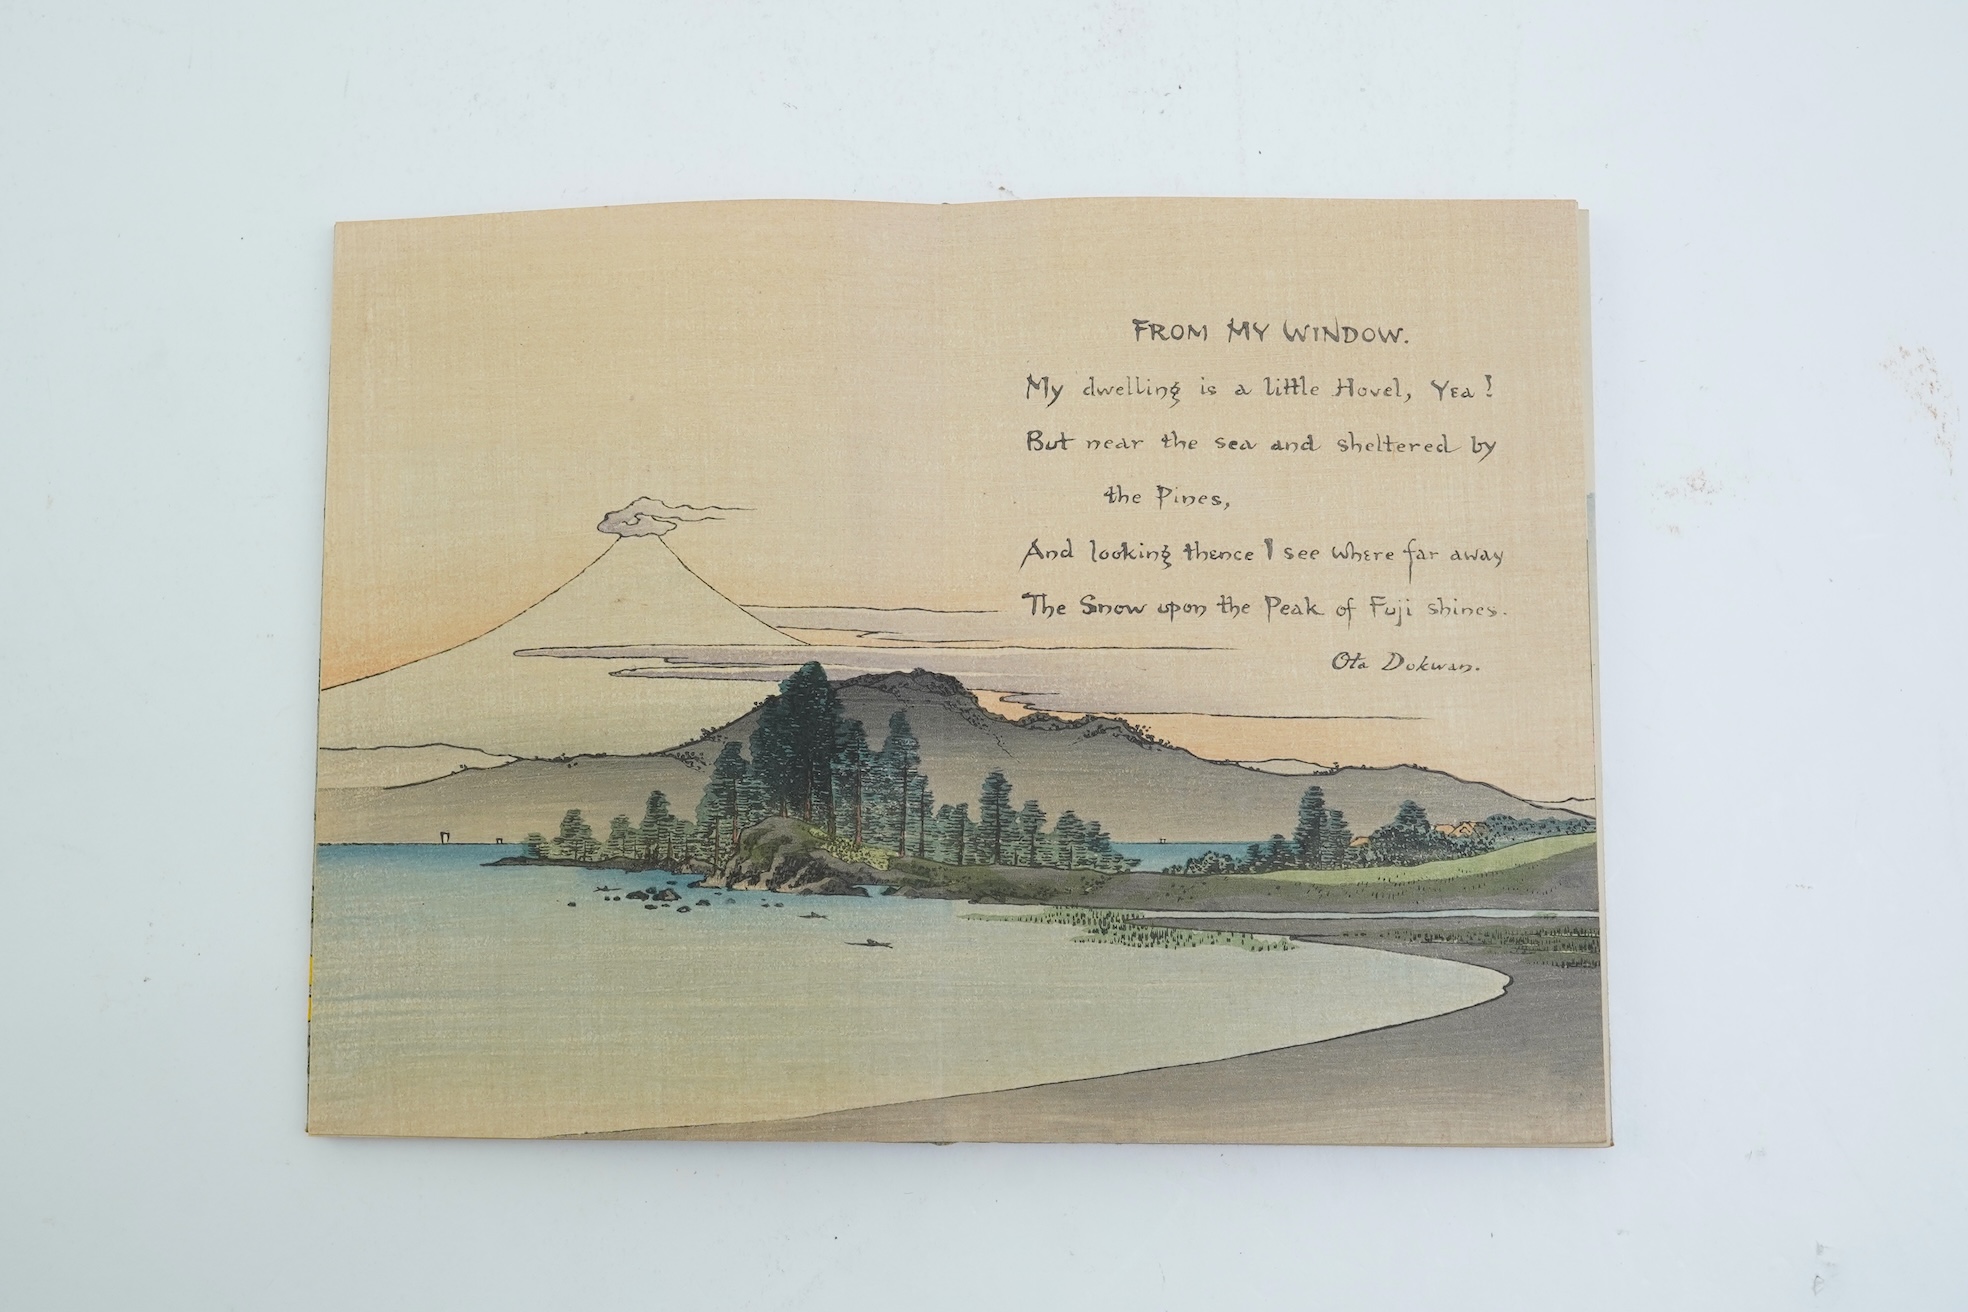 FROM MY WINDOW.
My dwelling is a little Hovel, Yea!
But near the sea and sheltered by
the Pines,
And looking thence I see where far away
The Snow upon the Peak of Fuji shines.
Ota Dokwan.